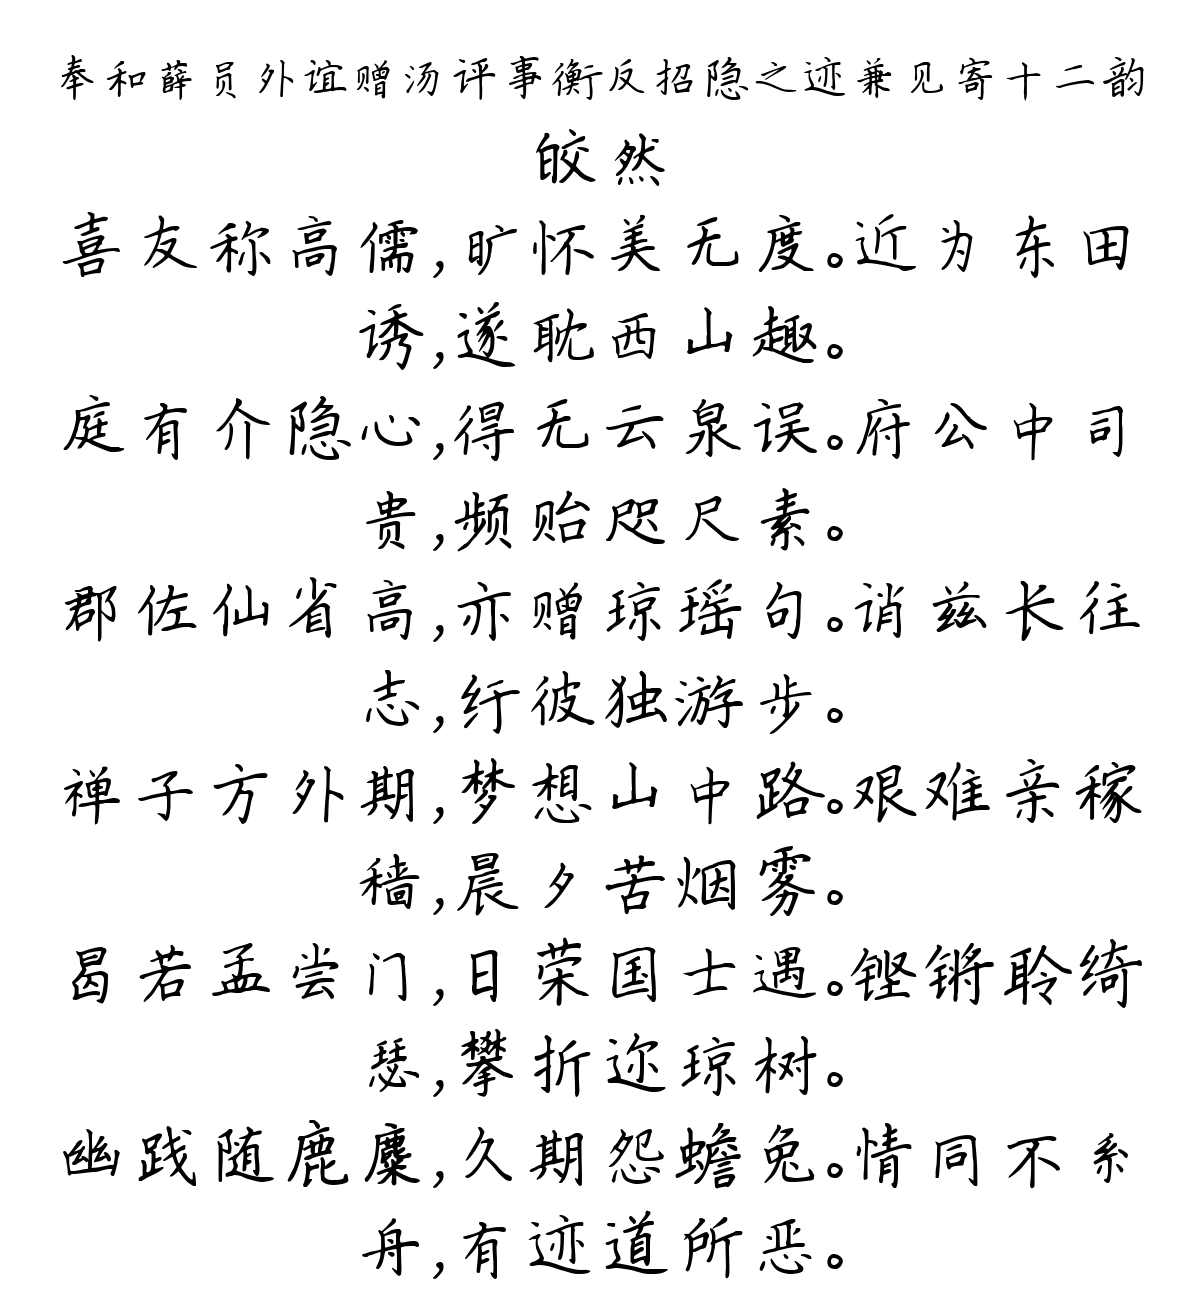 奉和薛员外谊赠汤评事衡反招隐之迹兼见寄十二韵
皎然
喜友称高儒,旷怀美无度。近为东田
诱,遂耽西山趣。
庭有介隐心,得无云泉误。府公中司
贵,频贻咫尺素。
郡佐仙省高,亦赠琼瑶句。诮兹长往
志,纡彼独游步。
禅子方外期,梦想山中路。艰难亲稼
穑,晨夕苦烟雾。
曷若孟尝门,日荣国士遇。铿锵聆绮
瑟,攀折迩琼树。
幽践随鹿麋,久期怨蟾兔。情同不系
舟,有迹道所恶。